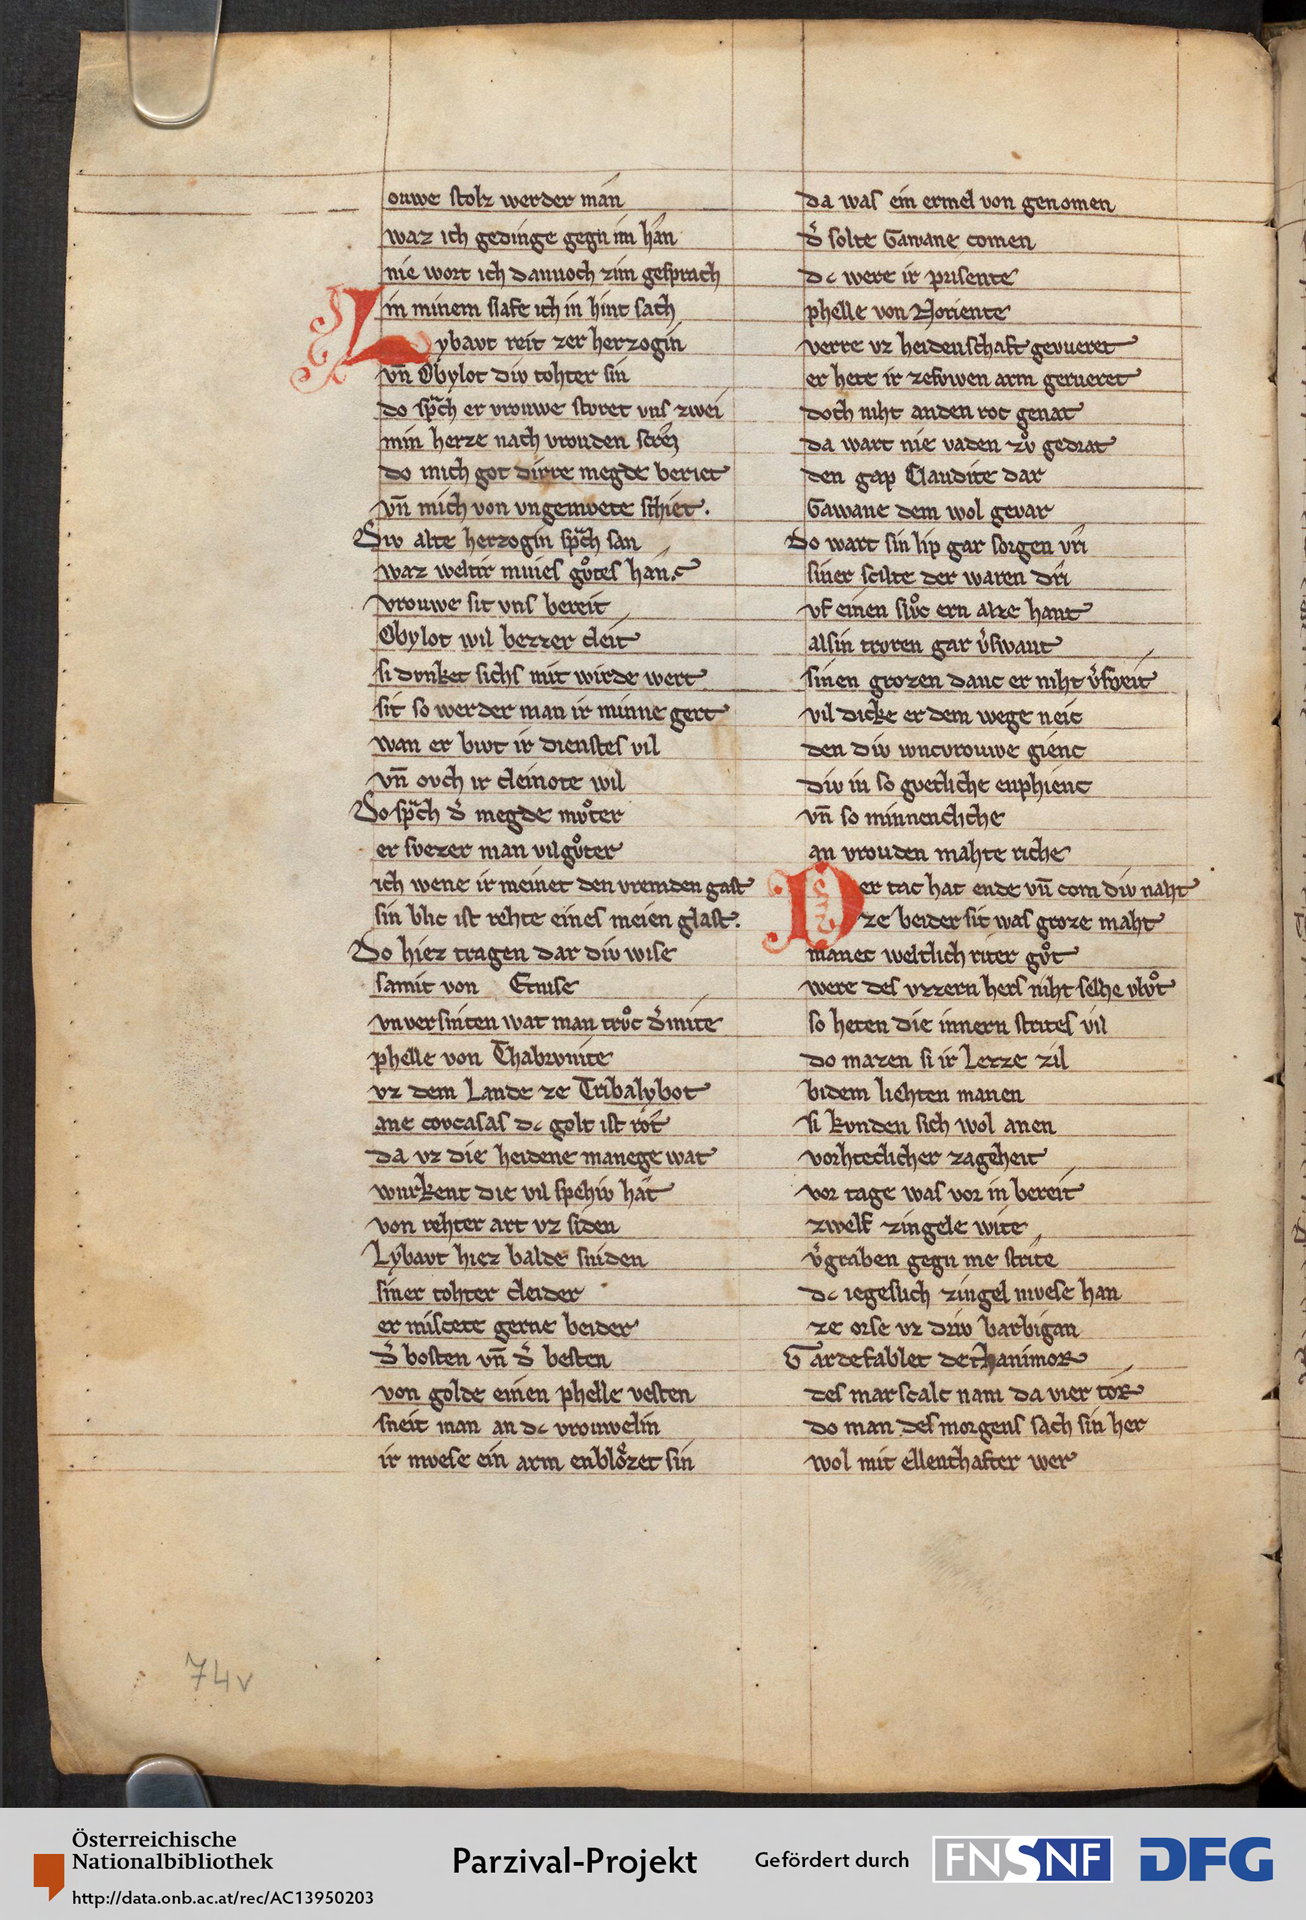 ouwe stolz werder man
waz ich gedinge gegn im han
nie wort ich dannoch zim gesprach
in minem slafe ich in hint sach
Lybavt reit zer herzogin
vn̄ Obylot div tohter sin
do sprach er vrouwe stvret vns zwei
min herze nach vrouden screi
do mich got dirre megde beriet
vn̄ mich von vngemvete schiet.
Div alte herzogin sprach san
waz welt ir mines gvͦtes han
vrouwe sit vns bereit
Obylot wil bezzer cleit
si dvnket sichs mit wirde wert
sit so werder man ir minne gert
wan er bivt ir dienstes vil
vn̄ ovch ir cleinote wil
Do sprach d̾ megde mvͦter
er svezer man vil gvͦter
ich wene ir meinet den vremden gast
sin blic ist rehte eines meien glast.
Do hiez tragen dar div wise
samit von Ecnise
vnversniten wat man trvͦc d̾ mite
phelle von Thabronite
vz dem Lande ze Tribalybot
ane covcasas dc golt ist rot
da vz die heidene manege wat
wurkent die vil spehiv hat
von rehter art vz siden
Lybavt hiez balde sniden
siner tohter cleider
er miscete gerne beider
d̾ bosten vn̄ d̾ besten
von golde einen phelle vesten
sneit man an dc vrouwelin
ir mvese ein arm enblozet sin
da was ein ermel von genomen
d̾ solte Gawane comen
dc were ir prisente
phelle von Noriente
verre vz heidenschaft gevueret
er hete ir zeswen arm gerueret
doch niht an den roc genat
da wart nie vaden zvͦ gedrat
den gap Claudite dar
Gawane dem wol gevar
Do wart sin lip gar sorgen vri
siner scilte der waren dri
vf einen slvͦc ern alze hant
al sin trvren gar v̾swant
sinen grozen danc er niht v̾sweic
vil dicke er dem wege neic
den div ivncvrouwe gienc
div in so guetliche enphienc
vn̄ so minnencliche
an vrouden mahte riche
Der tac hat ende vn̄ com div naht
ze beider sit was groze maht
manec weltlich riter gvͦt
were des vzzern hers niht selhe vlvͦt
so heten die innern strites vil
do mazen si ir Letze zil
bi dem liehten manen
si kvnden sich wol anen
vorhteclicher zageheit
vor tage was vor in bereit
zwelf zingele wite
v̾graben gegn me strite
dc iegeslich zingel mvese han
ze orse vz driv barbigan
Gardefablet de thanimor
des marscalc nam da vier tor
do man des morgens sach sin her
wol mit ellenthafter wer
74v
Österreichische
Nationalbibliothek
http://data.onb.ac.at/rec/AC13950203
Parzival-Projekt
Gefördert durch
FNSNF
DFG